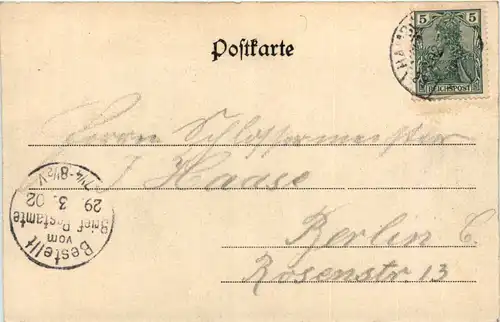 Postkarte
5 5
REICHSPOST
Herrn Schlossermeister
J Haase
Berlin C.
Rosenstr 13
Bestellt
vom
Brief Postamte
29. 3. 02
7¼-8½ V.